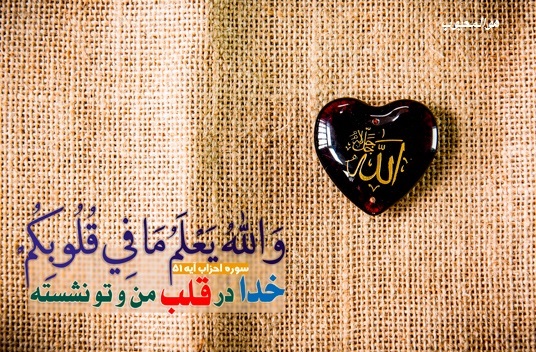 هوالمحبوب
الله جل جلاله
وَاللَّهُ يَعْلَمُ مَا فِي قُلُوبِكُمْ
سوره احزاب آیه ۵۱
خدا در قلب من و تو نشسته